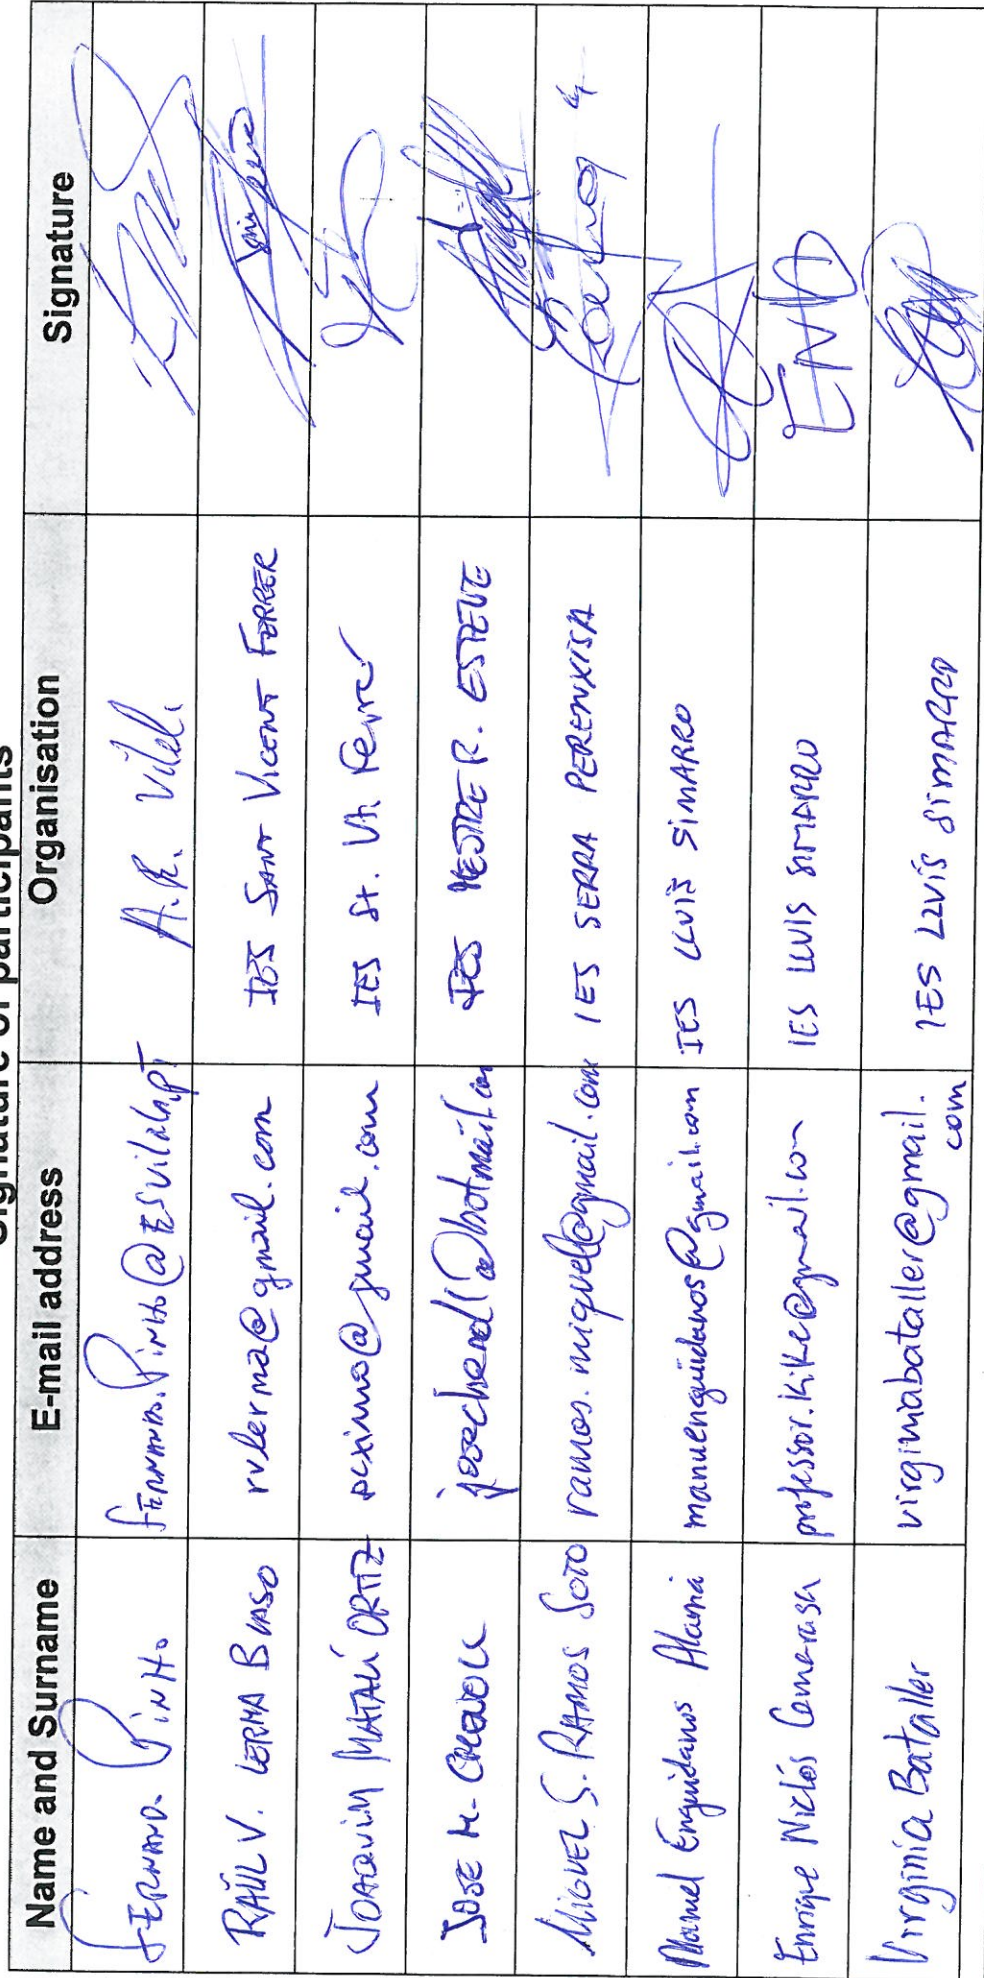 Signature of participants
Name and Surname E-mail address Organisation Signature
FERNANDO PINHO A.R. Vilela
RAÜL V. LERMA BLASO rvlerma@gmail.com IES SANT VICENT FERRER
JOAQUIM MATALÍ ORTIZ IES St. Vt. Ferrer
JOSE M. IES MESTRE R. ESTEVE
MIGUEL S. RAMOS SOTO ramos.miguel@gmail.com IES SERRA PERENXISA Ramos
Manuel Enguídanos Alamá manuenguidanos@gmail.com IES LLUÍS SIMARRO
Enrique Niclós Camarasa professor.kike@gmail.com IES LLUIS SIMARRO ENC
Virginia Bataller virginiabataller@gmail. IES LLUÍS SIMARRO
com